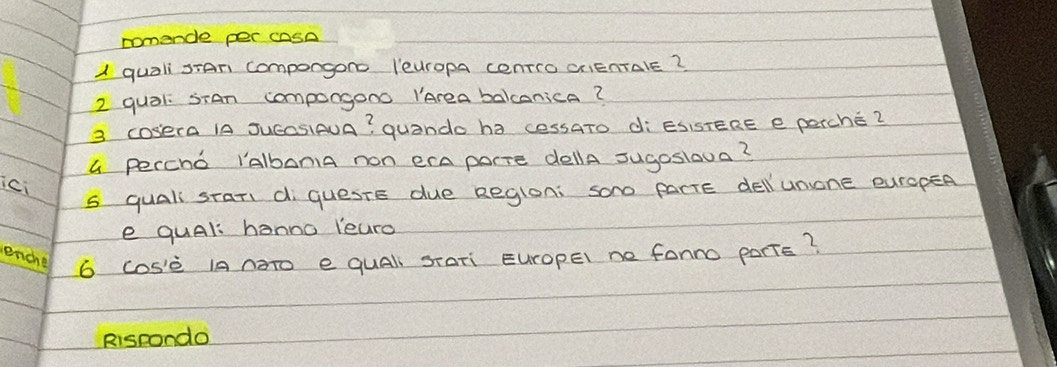 Domande per casa
1 quali STATI compongono l'europa centro ORIENTALE?
2 quali STATI compongono l'Area balcanica?
3 cos'era la JUGOSLAVA? quando ha cessato di ESISTERE e perché?
4 perché l'albania non era parte della Jugoslava?
ici
5 quali STATI di queste due Regioni sono parte dell'unione europea
e quali hanno l'euro
enche
6 cos'è la nato e quali STATI EUROPEI ne fanno parte?
Rispondo